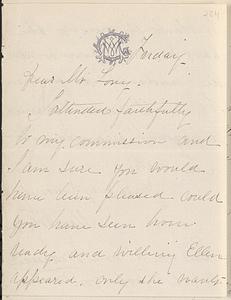 284
Friday
Dear Mr Long.
I attended faithfully
to my commission and
I am sure you would
have been pleased could
you have seen how
ready and willing Ellen
appeared, only she wants